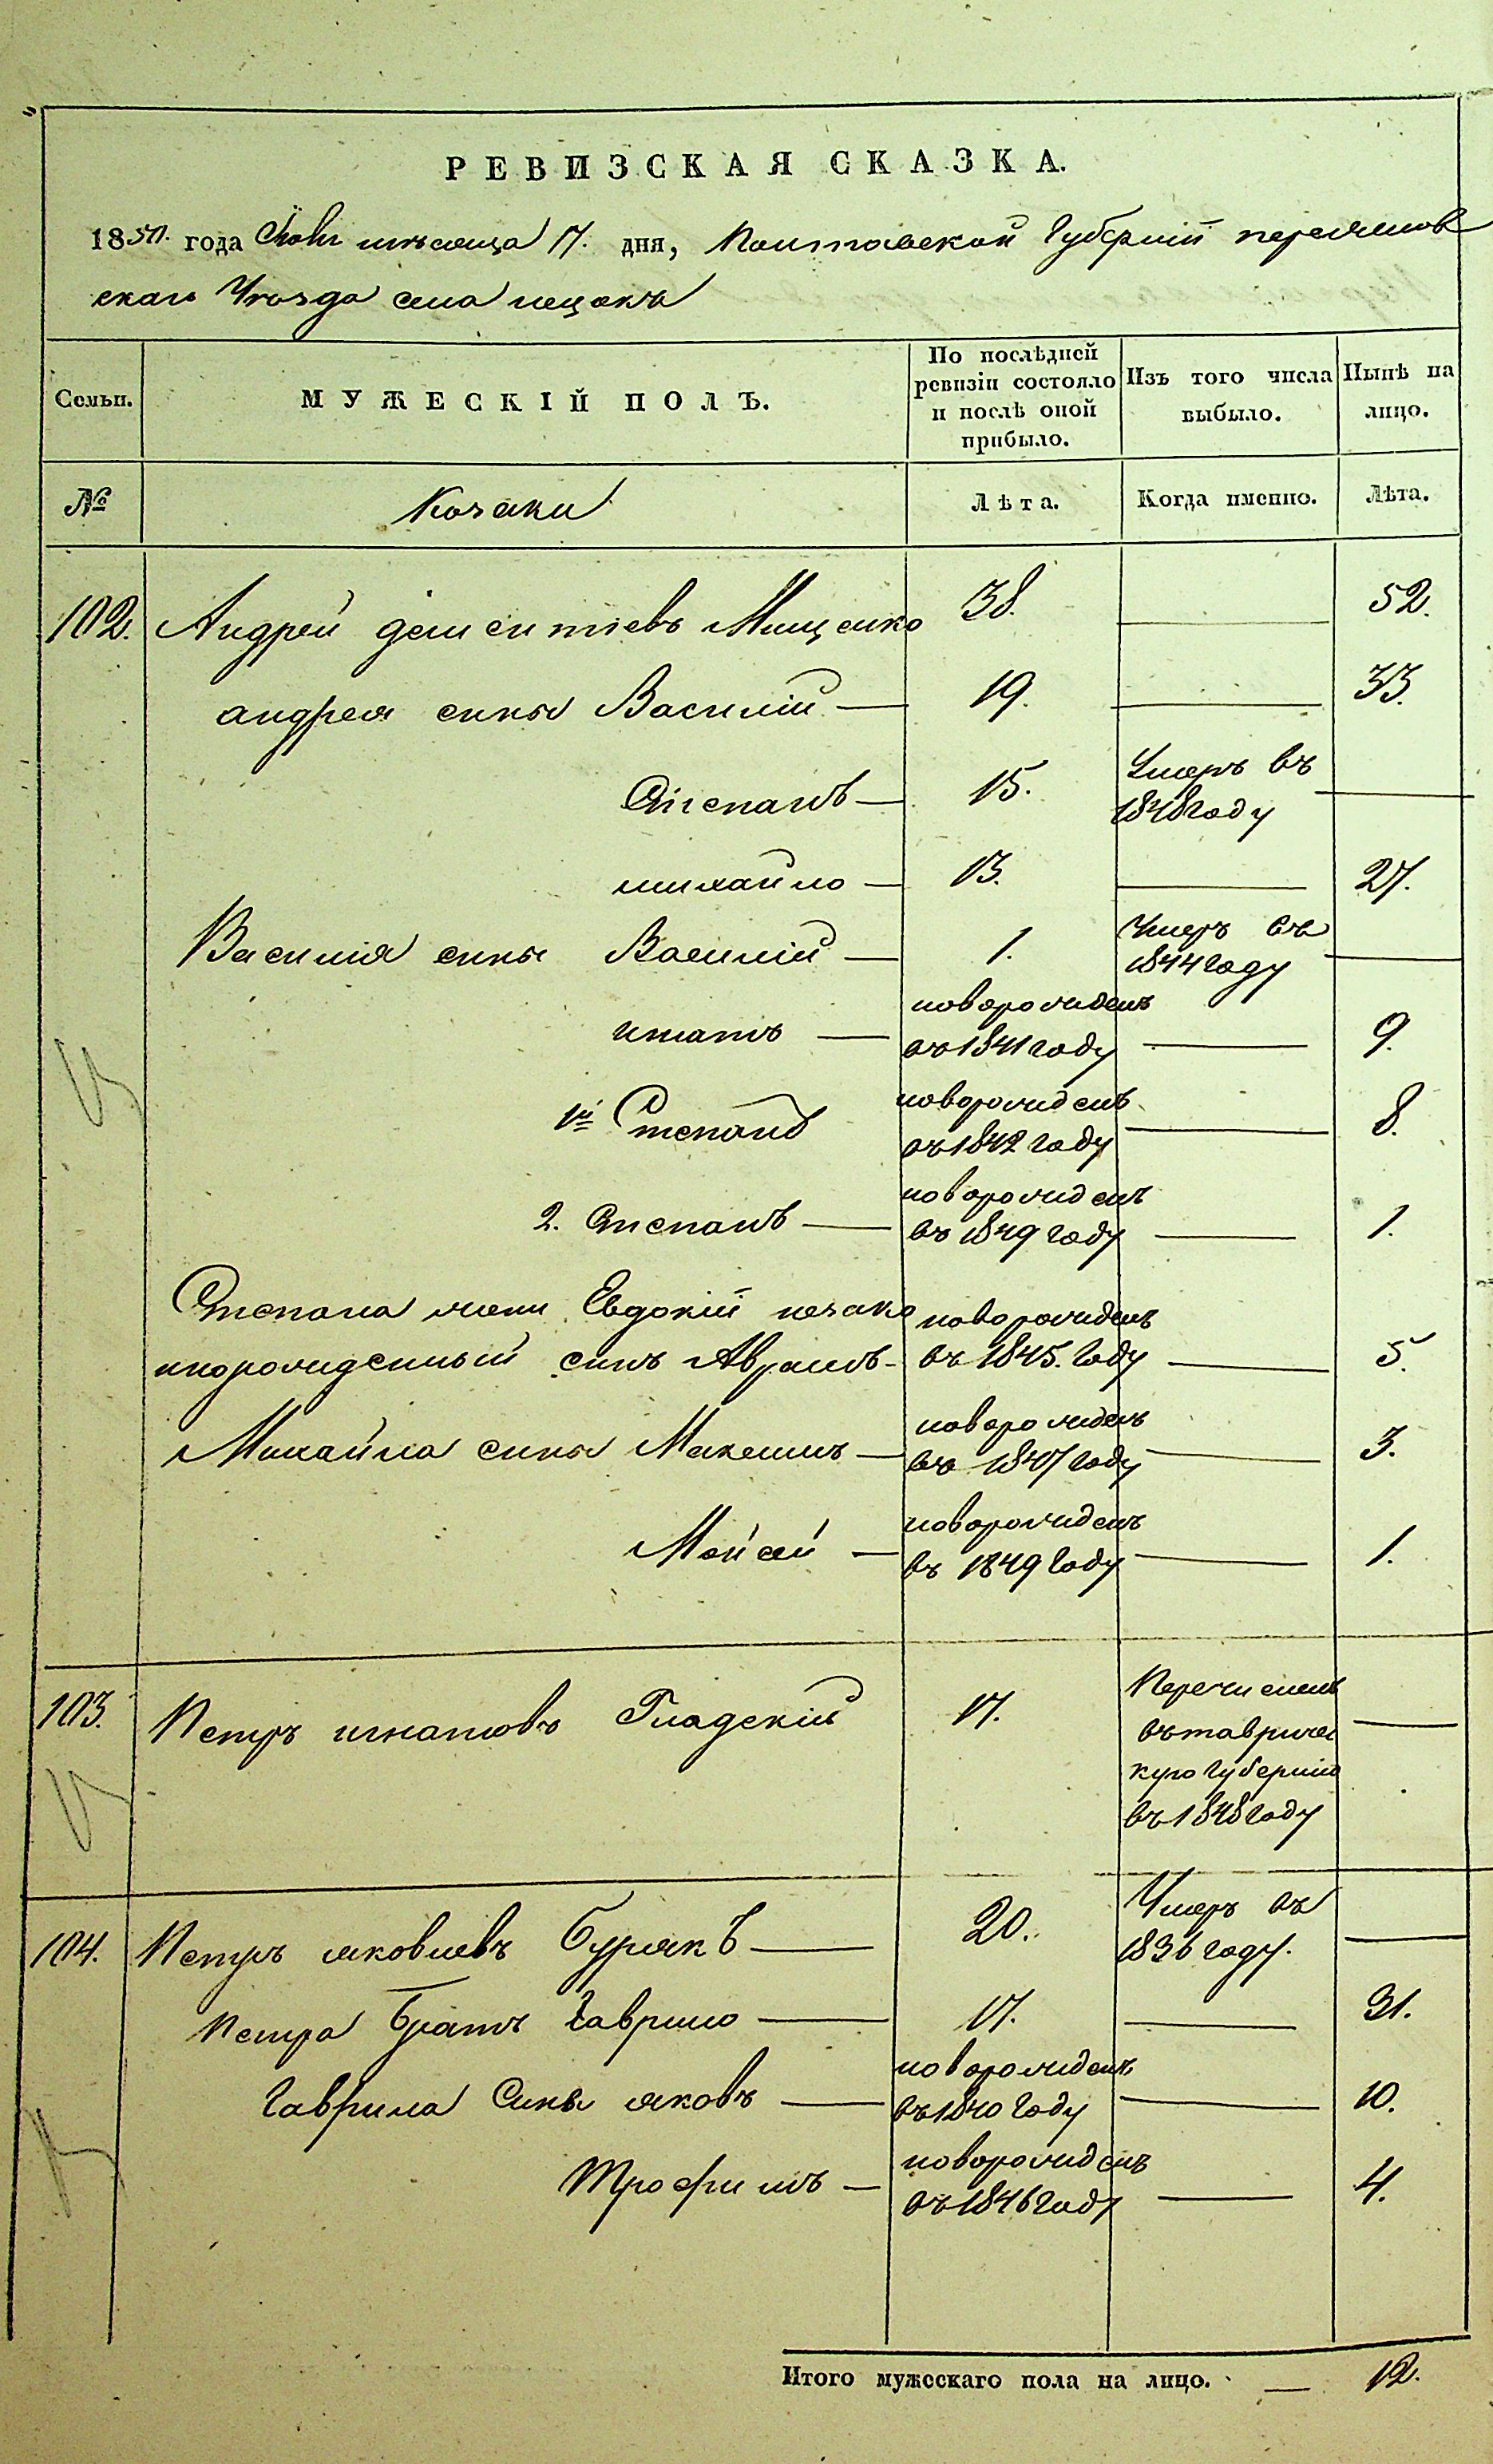 РЕВИЗСКАЯ СКАЗКА.
1850. года мѣсяца 17. дня, Полтавской Губерніи переяслов
скаго Уѣзда села
Семьи.
МУЖЕСКІЙ ПОЛЪ.
По послѣдней ревизіи состояло и послѣ оной прибыло.
Изъ того числа выбыло.
Нынѣ на лицо.
№
Козаки
Лѣта.
Когда именно.
Лѣта.
102. Андрей дементіевъ Мищенко 38. 52.
андрея сины Василій 19. 33.
Степанъ 15. Умеръ въ
1848 году
михайло 13. 27.
Василія сины Василій 1. Умеръ въ
1844 году
игнатъ новорожденъ
въ 1841 году 9.
1й Степанъ новорожденъ
въ 1842 году 8.
2. Степанъ новорожденъ
въ 1849 году 1.
Степана жени Евдокій незако новорожденъ
норожденный синъ Аврамъ въ 1845. Году 5.
Михайла сины Максимъ новорожденъ
въ 1847 году 3.
Мойсей новорожденъ
въ 1849 Году 1.
103. Петръ игнатовъ Гладскій 17. Перечисленъ
въ тавричес
кую Губернію
въ 1848 году
104. Петръ яковлевъ Бурякъ 20. Умеръ въ
1836 году.
Петра Братъ Гаврило 17. 31.
Гаврила Сины яковъ новорожденъ
въ 1840 Году 10.
Трофимъ новорожденъ
въ 1846 году 4.
Итого мужескаго пола на лицо. 12.